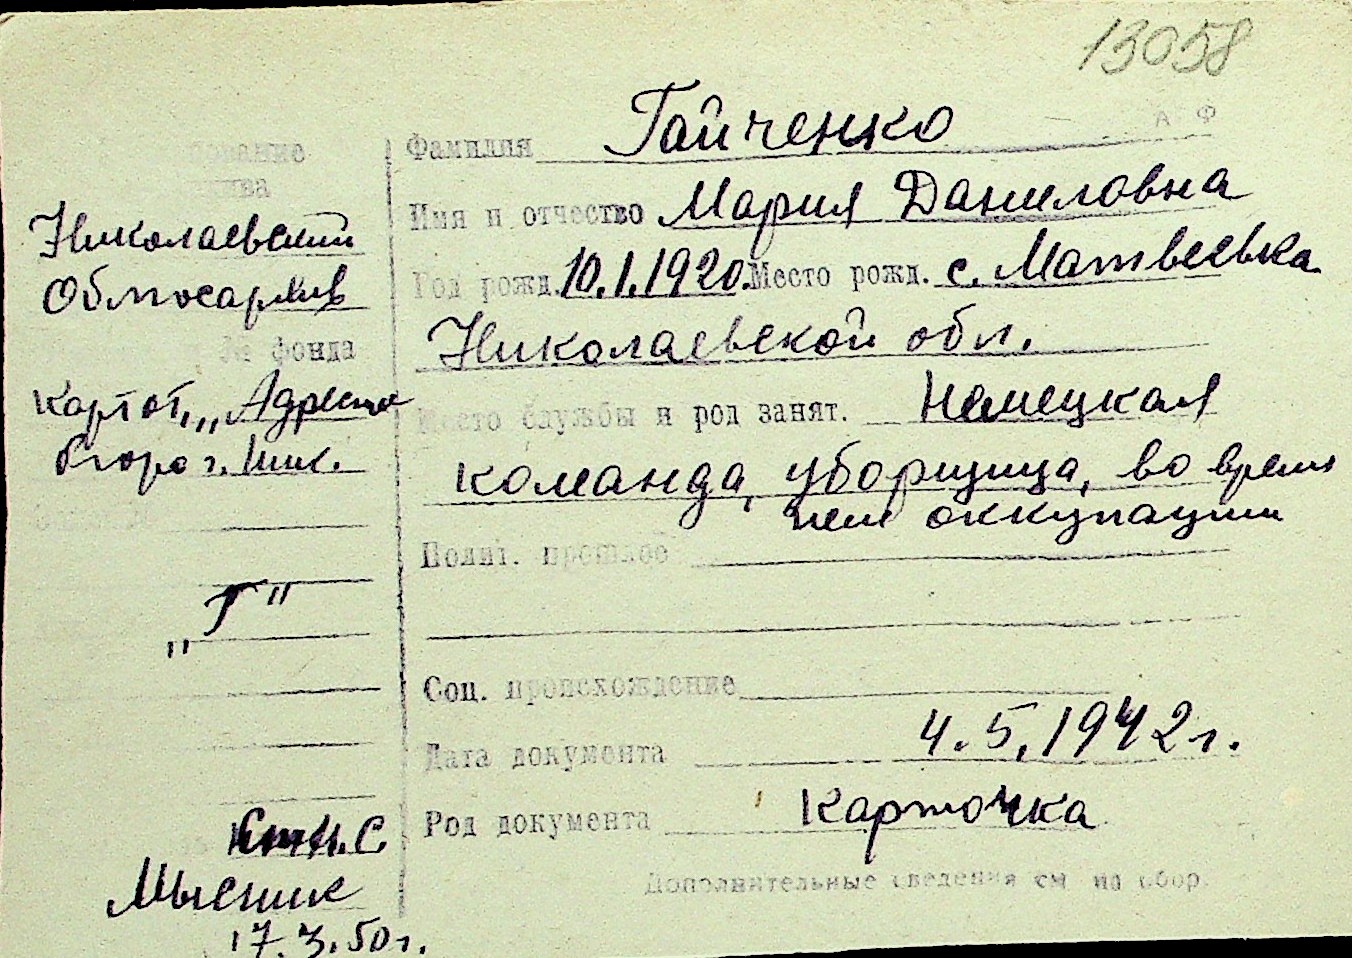 13058
А Ф
Фамилия Гайченко
Имя и отчество Мария Даниловна
Год рожд. 10.1.1920. Место рожд. с. Матвеевка
Николаевской обл.
Место службы и род занят. Немецкая
команда, уборщица, во время
нем оккупации
Полит. прошлое
Соц. происхождение
Дата документа 4.5.1942г.
Род документа Карточка
Дополнительные сведения см на обор.
Николаевский
Облгосархив
№ фонда
Картот. „Адресное
бюро г. Ник.
„Г"
17.3.50г.